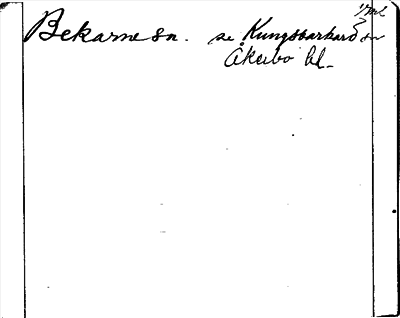 Vml
Bekarne sn. se Kungsbarkarö sn
Åkerbo hd.